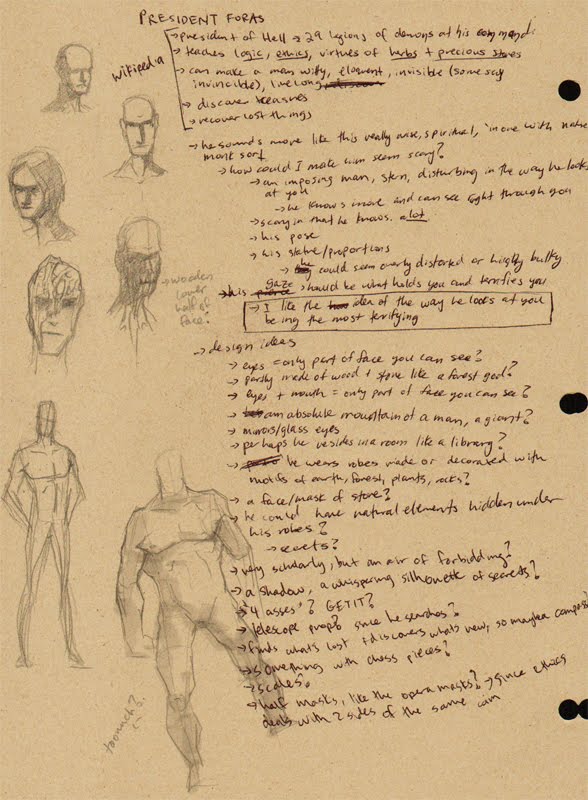 PRESIDENT FORAS
wikipedia
→ president of Hell → 29 legions of demons at his command
→ teaches logic, ethics, virtues of herbs + precious stones
→ can make a man witty, eloquent, invisible (some say
invincible), live long
→ discover treasures
→ recover lost things
→ he sounds more like this really wise, spiritual, "in one with nature"
monk sort
→ how could I make him seem scary?
→ an imposing man, stern, disturbing in the way he looks
at you
→ he knows more and can see right through you
→ scary in that he knows. a lot
→ his pose
→ his stature/proportions
→ he could seem overly distorted or highly bulky
→ his gaze should be what holds you and terrifies you
→ I like the idea of the way he looks at you
being the most terifying
→ wooden
lower
half of
face?
→ design ideas
→ eyes = only part of face you can see?
→ partly made of wood + stone like a forest god?
→ eyes + mouth = only part of face you can see?
→ an absolute mountain of a man, a giant?
→ mirrors/glass eyes
→ perhaps he resides in a room like a library?
→ he wears robes made or decorated with
motifs of earth, forest, plants, rocks?
→ a face/mask of stone?
→ he could have natural elements hidden under
his robes?
→ secrets?
→ very scholarly, but an air of forbidding?
→ a shadow, a whispering silhouette of secrets?
→ "4 asses"? GET IT?
→ telescope prop? since he searches?
→ finds what's lost + discovers whats new, so maybe a compass?
→ something with chess pieces?
→ scales?
→ half masks, like the opera masks? → since ethics
deals with 2 sides of the same coin
too much?